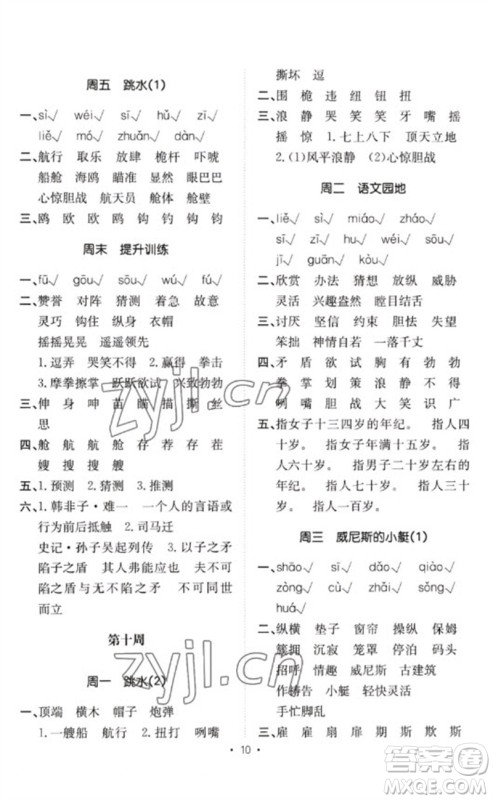 周五 跳水(1)
一、sì√ wéi√ sī√ hǔ√ zī√
liě√ mó√ zhuǎn√ dàn√
二、航行 取乐 放肆 桅杆 吓唬
船舱 海鸥 瞄准 龇牙 眼巴巴
心惊胆战 航天员 舱体 舱壁
三、鸥 欧 欧 鸥 钩 钓 钩 钓
周末 提升训练
一、fū√ gōu√ sōu√ wú√ fú√
二、赞誉 对阵 猜测 着急 故意
灵巧 钩住 纵身 衣帽
摇摇晃晃 遥遥领先
1.逗弄 哭笑不得 2.赢得 拳击
3.摩拳擦掌 跃跃欲试 兴致勃勃
三、伸 身 呻 苗 瞄 猫 撕 丝
思
四、舱 航 航 舱 存 荐 存 荐
嫂 搜 搜 嫂
五、1.预测 2.猜测 3.推测
六、1.韩非子·难一 一个人的言语或行
为前后抵触 2.司马迁
史记·孙子吴起列传 3.以子之矛
陷子之盾 其人弗能应也 夫不可
陷之盾与无不陷之矛 不可同世
而立
第十周
周一 跳水(2)
一、顶端 横木 帽子 炮弹
1.一艘船 航行 2.扭打 咧嘴
撕坏 逗
二、围 桅 违 纽 钮 扭
三、浪 静 哭 笑 笑 龇 牙 嘴 摇
摇 惊 1.七上八下 顶天立地
2.(1)风平浪静 (2)心惊胆战
周二 语文园地
一、liě√ sì√ miáo√ zháo√
sī√ zī√ hǔ√ wéi√ sōu√
jī√ guān√ kòu√
二、欣赏 办法 猜想 放纵 威胁
灵活 兴趣盎然 瞄准 咧嘴
三、讨厌 坚信 约束 胆怯 安静
笨拙 神情自若 一落千丈
四、矛 盾 欲 试 胸 有 勃 勃
风 平 摇 滚 浪 静 不 得
咧 嘴 胆 大 笑 识 广
五、指女子十三四岁的年纪。 指人
六十岁。 指女子年满十五岁。 指
人六十岁。 指男子二十岁。 指人
八九十岁。 指人五十岁。 指人
七十岁。 指人一百岁。
周三 威尼斯的小艇(1)
一、shāo√ sī√ dǎo√ qiào√
zòng√ cù√ zhǎi√ sǒng√
huá√
二、纵横 垫子 窗帘 操纵 保姆
簇拥 沉寂 笼罩 船艄 停泊
招呼 哗笑 威尼斯 古建筑
作祷告 小艇 轻快灵活
手忙脚乱
三、雇 雇 扉 扇 斯 期 欺 斯
· 10 ·